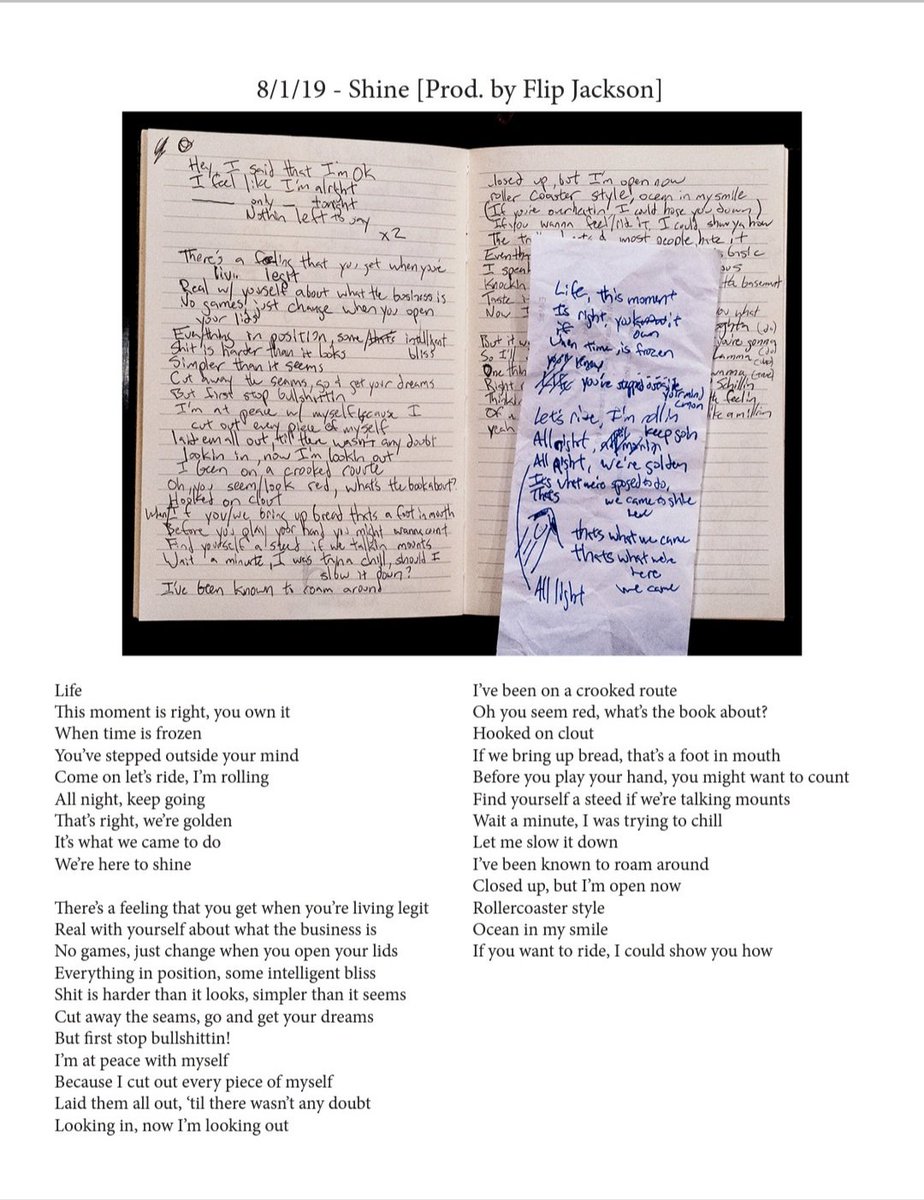 8/1/19 - Shine [Prod. by Flip Jackson]
Hey, I said that I'm Ok
I feel like I'm alright
only tonight
Nothin left to say
x2
There's a feeling that you get when you're
livin legit
Real w/ yourself about what the business is
No games, just change when you open
your lids
Everything in position, some/thats intelligent
bliss
Shit is harder than it looks
Simpler than it seems
Cut away the seams, go & get your dreams
But first stop bullshittin
I'm at peace w/ myself because I
cut out every piece of myself
laid em all out, 'til there wasn't any doubt
lookin in, now I'm lookin out
I been on a crooked route
Oh, you seem/look red, what's the book about?
Hooked on clout
What if you/we bring up bread thats a foot in mouth
Before you play your hand you might wanna count
Find yourself a steed if we talkin mounts
Wait a minute, I was tryna chill, should I
slow it down?
I've been known to roam around
closed up, but I'm open now
roller coaster style, ocean in my smile
(If you're overheatin, I could hose you down)
If you wanna feel/ride it, I could show ya how
The most people hate it
Even basic
I
Knockin the basement
Taste
Now I you what
But it you're gonna
So I'll
One thin
Right
feelin
Of a like a million
yeah
Life, this moment
Is right, you know it
if own
When time is frozen
you know
Life you've stepped outside
your mind
c'mon
Let's ride, I'm rollin
All night, keep goin
All right, we're golden
It's what we're sposed to do,
Thats we came to shine
here
thats what we came
thats what we're
here
All light we came
Life
This moment is right, you own it
When time is frozen
You've stepped outside your mind
Come on let's ride, I'm rolling
All night, keep going
That's right, we're golden
It's what we came to do
We're here to shine
There's a feeling that you get when you're living legit
Real with yourself about what the business is
No games, just change when you open your lids
Everything in position, some intelligent bliss
Shit is harder than it looks, simpler than it seems
Cut away the seams, go and get your dreams
But first stop bullshittin!
I'm at peace with myself
Because I cut out every piece of myself
Laid them all out, 'til there wasn't any doubt
Looking in, now I'm looking out
I've been on a crooked route
Oh you seem red, what's the book about?
Hooked on clout
If we bring up bread, that's a foot in mouth
Before you play your hand, you might want to count
Find yourself a steed if we're talking mounts
Wait a minute, I was trying to chill
Let me slow it down
I've been known to roam around
Closed up, but I'm open now
Rollercoaster style
Ocean in my smile
If you want to ride, I could show you how